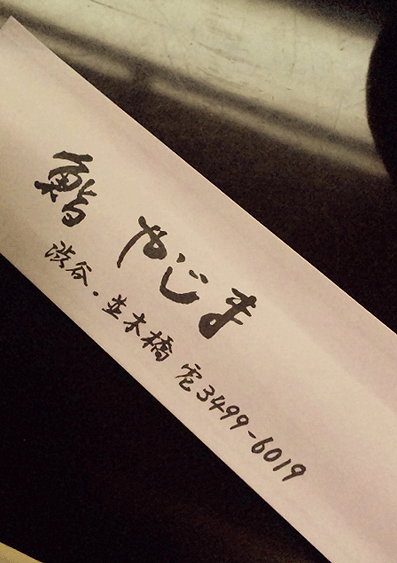 鮨 やじま
渋谷・並木橋 電3499-6019